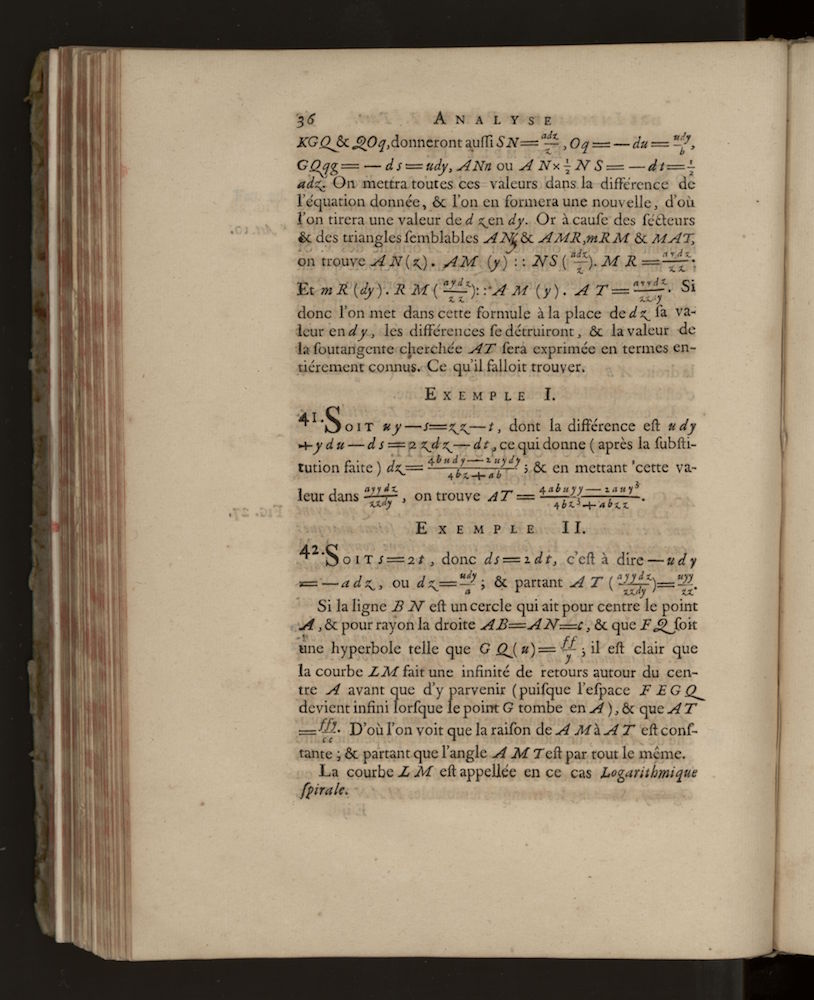 36 ANALYSE
KGQ & QOq, donneront auſſi SN=adz/z, Oq=—du=udy/b,
GQqg=—ds=udy, ANn ou AN×1/2 NS=—dt=1/2
adz. On mettra toutes ces valeurs dans la différence de
l'équation donnée, & l'on en formera une nouvelle, d'où
l'on tirera une valeur de dz en dy. Or à cauſe des ſécteurs
& des triangles ſemblables ANS & AMR, mRM & MAT,
on trouve AN(z). AM (y) :: NS (adz/z). MR=aydz/zz.
Et mR (dy). RM (aydz/zz) :: AM (y). AT=ayydz/zzdy. Si
donc l'on met dans cette formule à la place de dz ſa va-
leur en dy, les différences ſe détruiront, & la valeur de
la ſoutangente cherchée AT ſera exprimée en termes en-
tiérement connus. Ce qu'il falloit trouver.
EXEMPLE I.
41. SOIT uy—s=zz—t, dont la différence eſt udy
+ydu—ds=2zdz—dt, ce qui donne (après la ſubſti-
tution faite) dz=4budy—2uydy/4bz+ab; & en mettant cette va-
leur dans ayydz/zzdy, on trouve AT=4abuyy—2auy³/4bz³+abzz.
EXEMPLE II.
42. SOIT s=2t, donc ds=2dt, c'eſt à dire —udy
=—adz, ou dz=udy/a; & partant AT (ayydz/zzdy)=uyy/zz.
Si la ligne BN eſt un cercle qui ait pour centre le point
A, & pour rayon la droite AB=AN=c, & que FQ ſoit
une hyperbole telle que GQ(u)=ff/y; il eſt clair que
la courbe LM fait une infinité de retours autour du cen-
tre A avant que d'y parvenir (puiſque l'eſpace FEGQ
devient infini lorſque le point G tombe en A), & que AT
=ffy/cc. D'où l'on voit que la raiſon de AM à AT eſt conſ-
tante; & partant que l'angle AMT eſt par tout le même.
La courbe LM eſt appellée en ce cas Logarithmique
ſpirale.